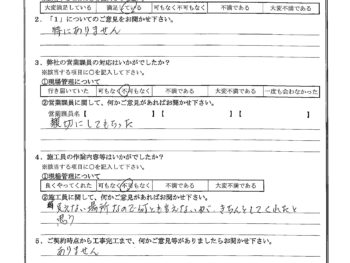 大変満足している 満足している 可もなく不可もなく 不満である 大変不満である
2.「1」についてのご意見をお聞かせ下さい。
特にありません
3. 弊社の営業職員の対応はいかがでしたか?
※該当する項目に○を記入して下さい。
①現場管理について
行き届いていた 可もなく不可もなく 不満である 大変不満である 一度も会わなかった
②営業職員に関して、何かご意見があればお聞かせ下さい。
営業職員名【 】【 】【 】
親切にしてもらった
4. 施工員の作業内容等はいかがでしたか?
※該当する項目に○を記入して下さい。
①現場管理について
良くやってくれた 可もなく不可もなく 不満である 大変不満である
②施工員に関して、何かご意見があればお聞かせ下さい
見えない場所なので何とも言えないが、きちんとしてくれたと
思う
5. ご契約時点から工事完工まで、何かご意見等がありましたらお聞かせ下さい
ありません